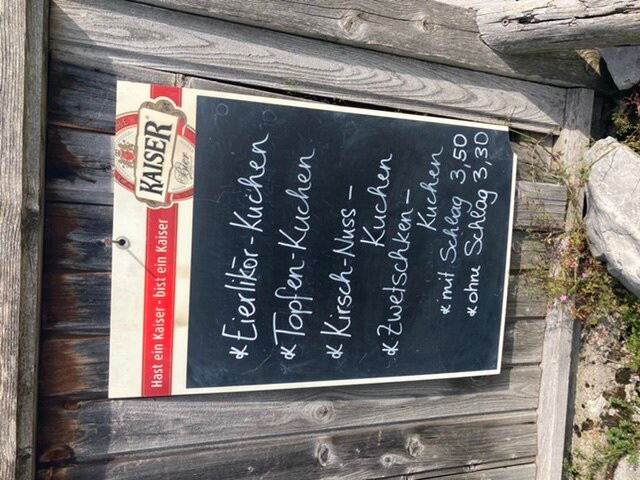 KAISER
Bier
Hast ein Kaiser - bist ein Kaiser
* Eierlikör-Kuchen
* Topfen-Kuchen
* Kirsch-Nuss-
Kuchen
* Zwetschken-
Kuchen
* mit Schlag 3,50
* ohne Schlag 3,30